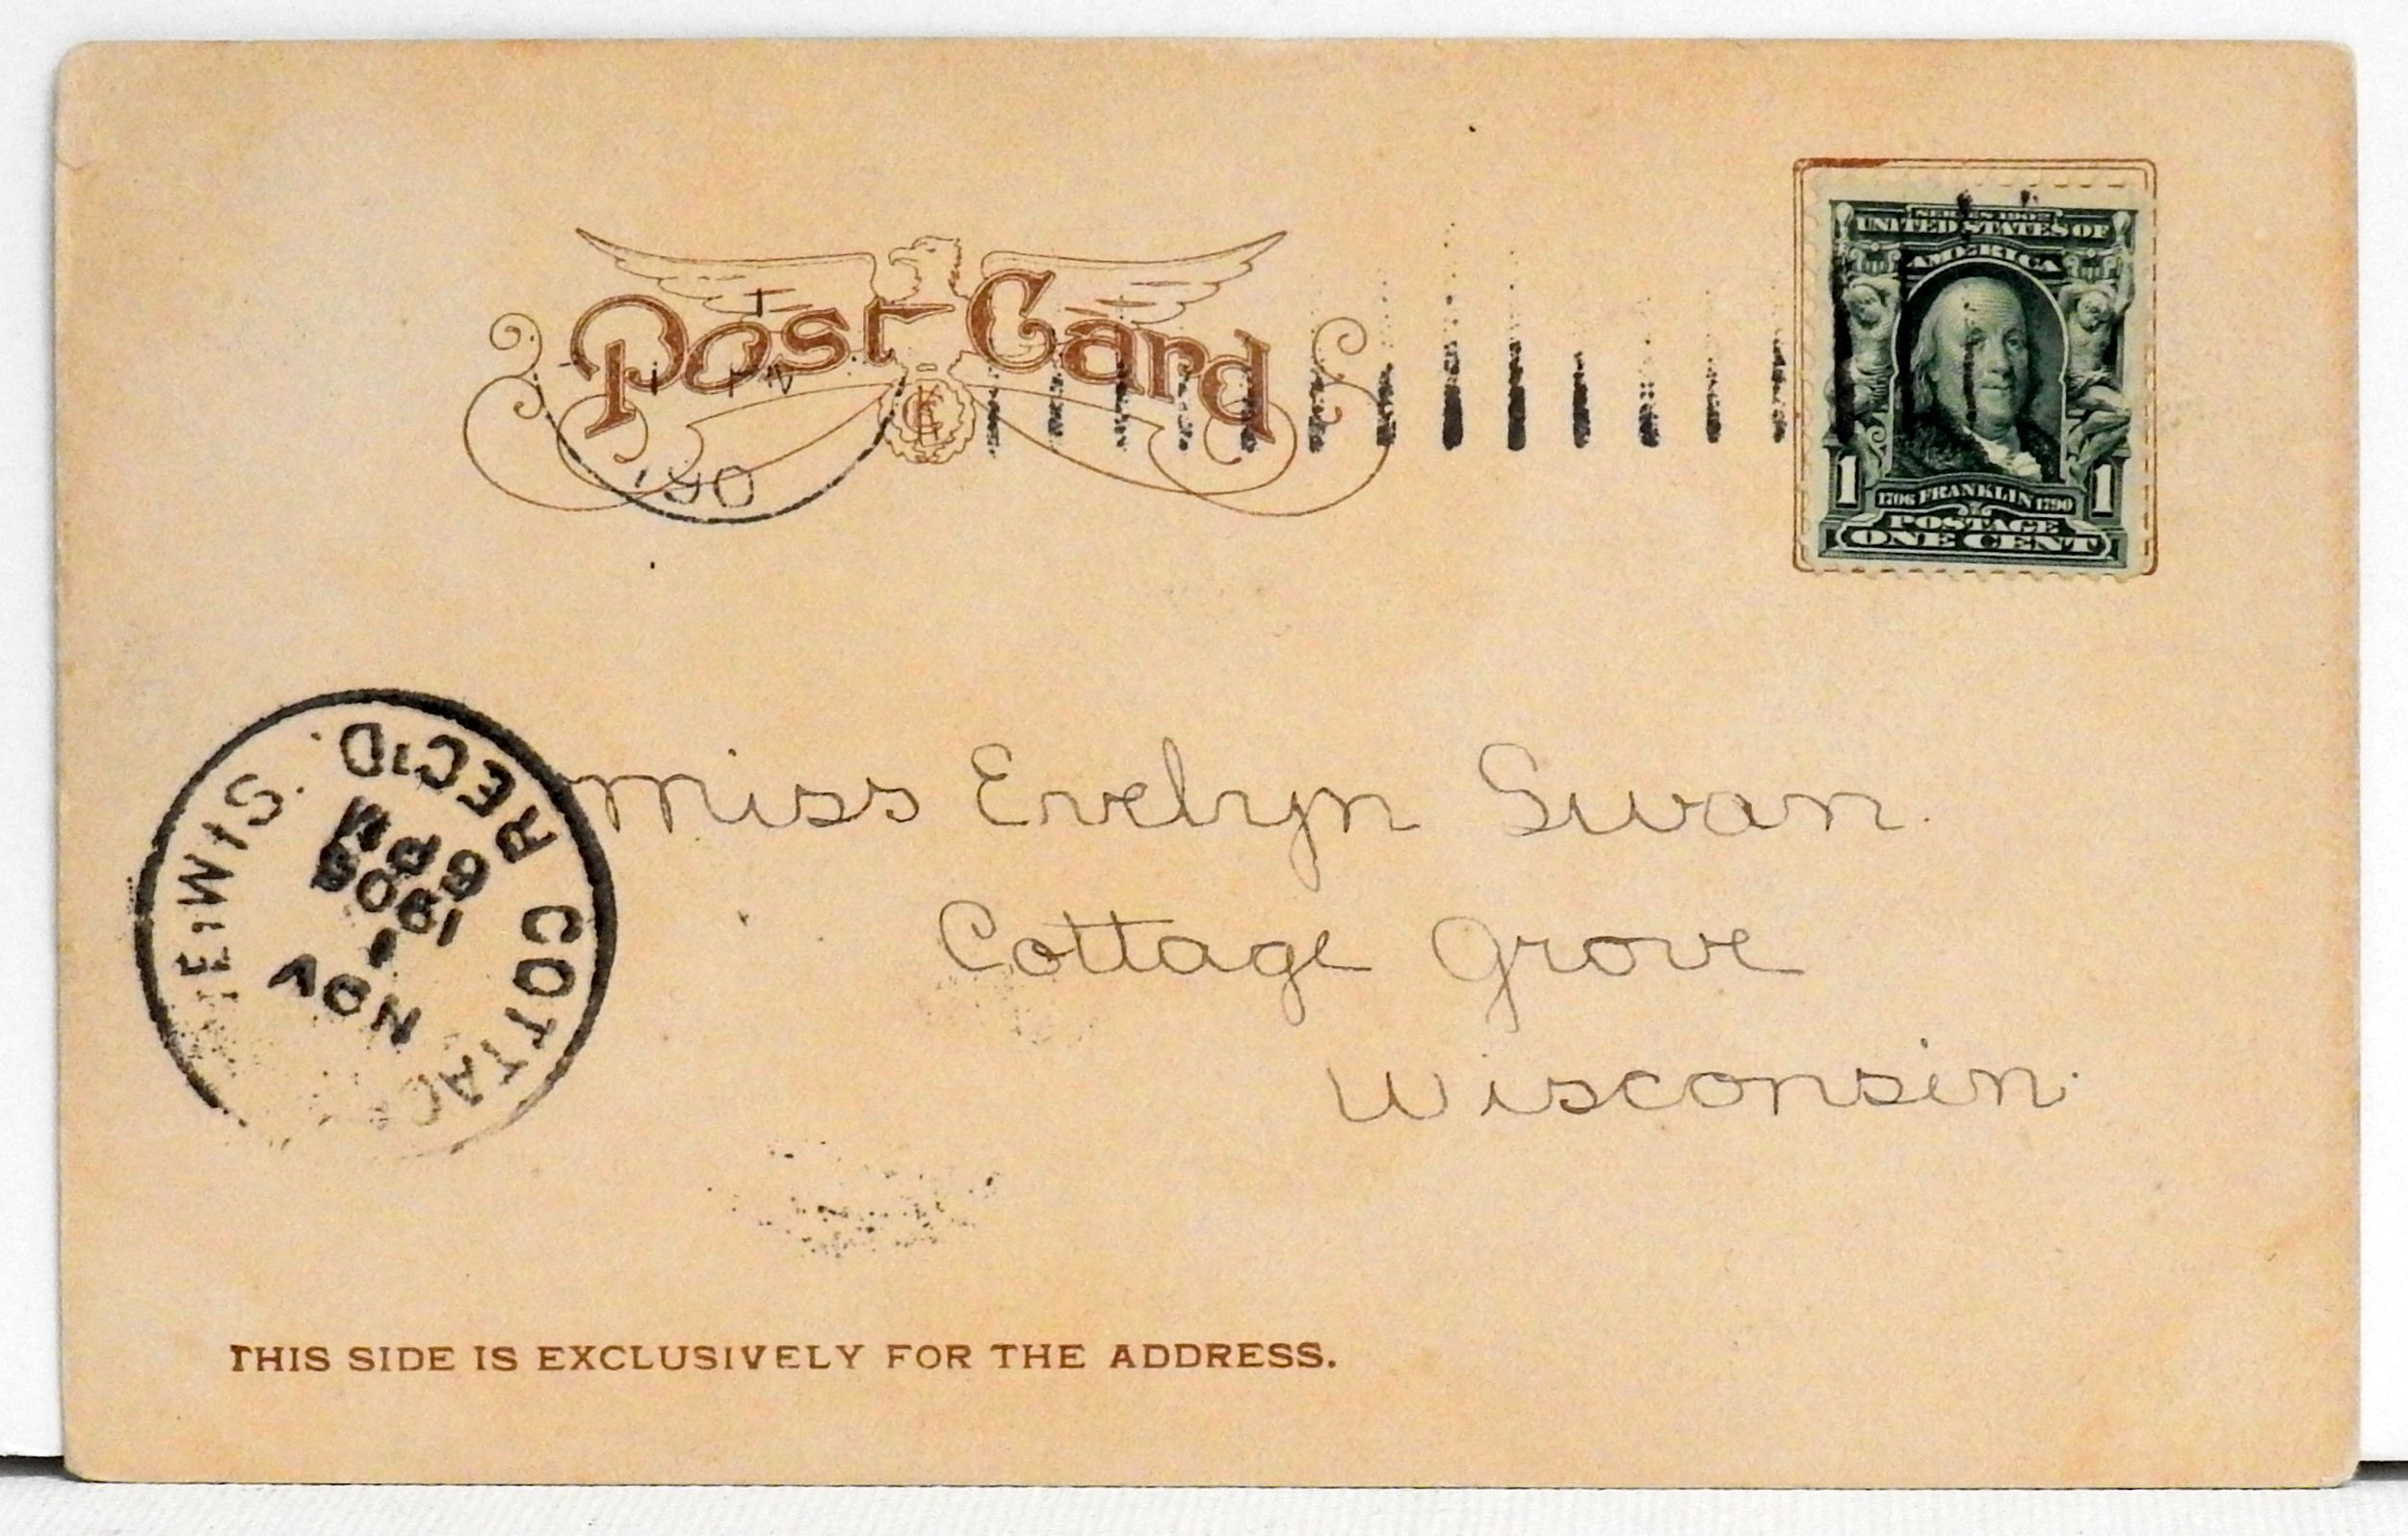 Post Card
SERIES 1902
UNITED STATES OF
AMERICA
1 1
1706 FRANKLIN 1790
POSTAGE
ONE CENT
190
REC'D.
COTTAG
WIS.
NOV
1
190
6 PM
Miss Evelyn Swan.
Cottage Grove
Wisconsin.
THIS SIDE IS EXCLUSIVELY FOR THE ADDRESS.